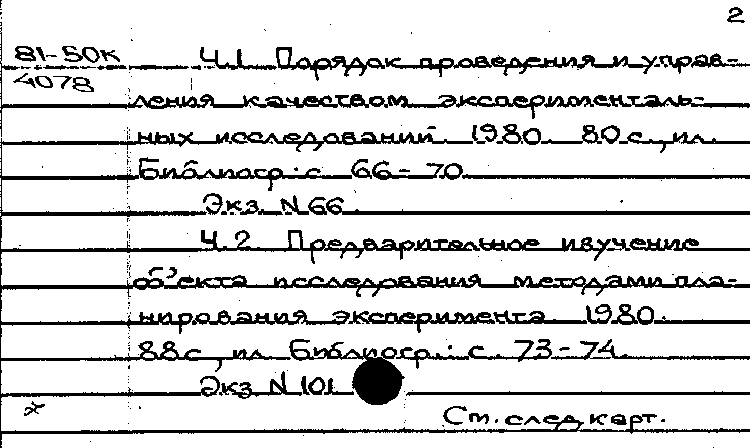 2
81-50к Ч.1 Порядок проведения и управ-
4078
ления качеством эксперименталь-
ных исследований. 1980. 80 с., ил.
Библиогр.: с. 66-70.
Экз. N 66.
Ч.2 Предварительное изучение
объекта исследования методами пла-
нирования эксперимента. 1980.
88 с., ил. Библиогр.: с. 73-74.
Экз. N 101
См. след. карт.